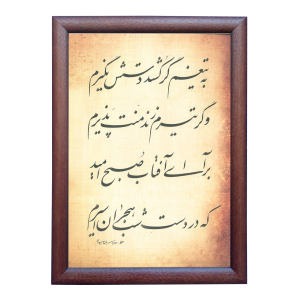 به تیغم گر کشد دستش نگیرم
وگر تیرم زند منت پذیرم
برآ ای آفتاب صبح امید
که در دست شب هجران اسیرم